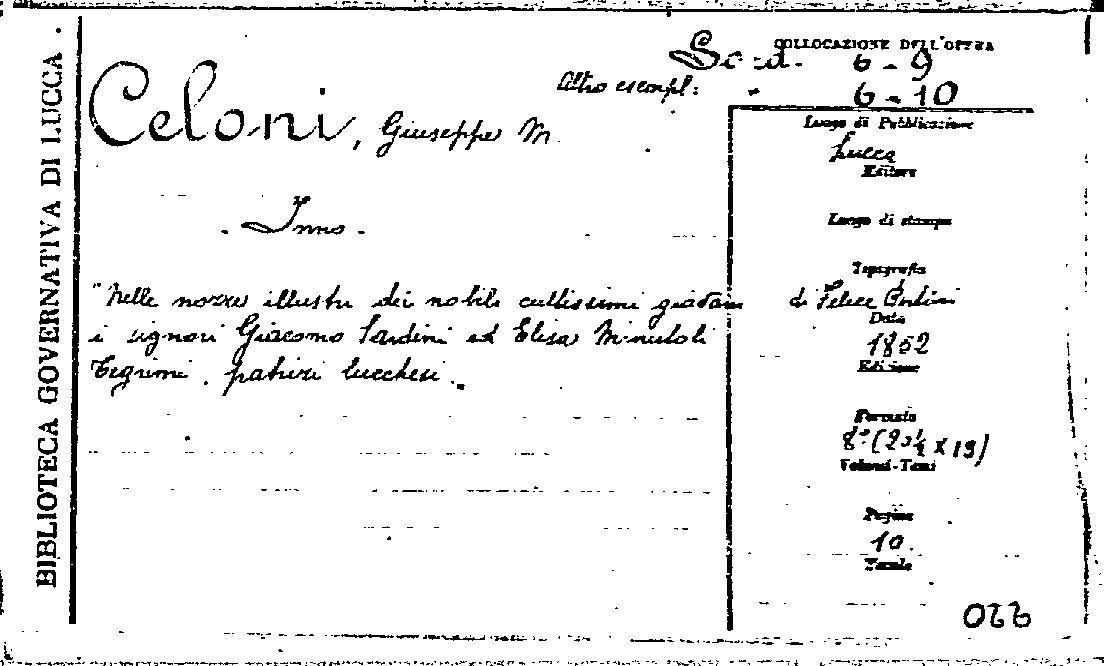 BIBLIOTECA GOVERNATIVA DI LUCCA
COLLOCAZIONE DELL'OPERA
6-9
Altro esempl: " 6-10
Celoni, Giuseppe M
Inno.
"Nelle nozze illustri dei nobili cultissimi giovani
i signori Giacomo Sardini ed Elisa Minutoli
Tegrimi, patrizi lucchesi.
Luogo di Pubblicazione
Lucca
Editore
Luogo di stampa
Tipografia
di Felice
Data
1852
Edizione
Formato
8º (20½ x 13)
Volumi-Tomi
Pagine
10.
Tavole